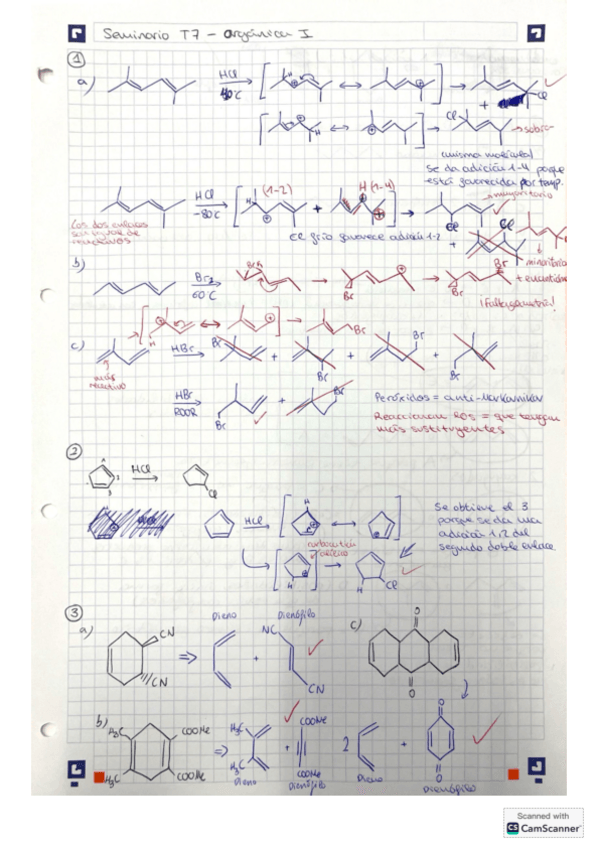 Seminario T7 - orgánica I
1
a)
HCl
40°C
H
⊕
Cl
+
H
⊕
Cl
→ sobra
misma molécula
se da adición 1-4 porque
está favorecida por temp.
HCl
-80°C
H (1-2)
+
H (1-4)
mayoritario
Cl
Cl
Los dos enlaces
son igual de
reactivos
el frío favorece adición 1-2
+
Cl
Cl
minoritario
b)
Br₂
60°C
Br
Br
Br
Br
+ enantióme
¡Falta geometría!
H
Br
c)
más
reactivo
HBr
Br
+
Br
+
Br
+
Br
HBr
ROOR
Br
+
Br
Peróxidos = anti-Markovnikov
Reaccionan los = que tengan
más sustituyentes
2
HCl
Cl
3
HCl
H
⊕
Se obtiene el 3
porque se da una
adición 1,2 del
segundo doble enlace.
carbocatión
alílico
H
H
Cl
3
a)
CN
CN
⇒
Dieno
+
Dienófilo
NC
CN
c)
O
O
b)
H₃C
H₃C
COOMe
COOMe
⇒
H₃C
H₃C
Dieno
+
COOMe
COOMe
Dienófilo
2
Dieno
+
O
O
Dienófilo
Scanned with
CS CamScanner